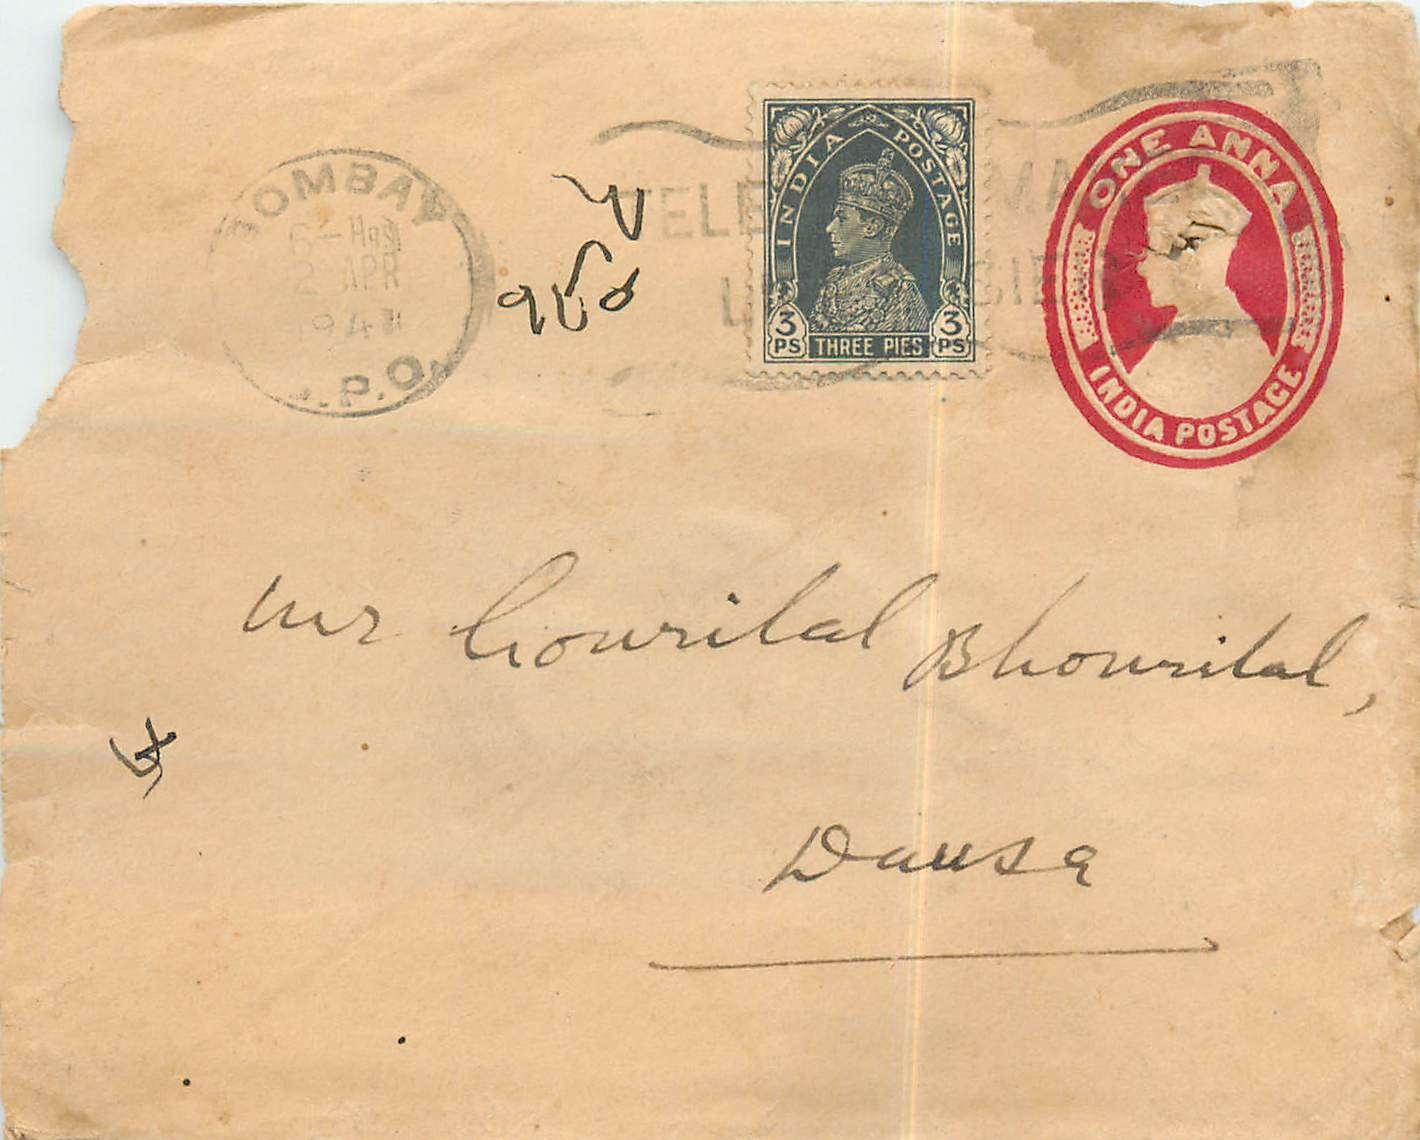 BOMBAY
2 APR
194
.P.O.
TELE
INDIA POSTAGE
3 PS THREE PIES 3 PS
ONE ANNA
INDIA POSTAGE
Mr Gowrilal Bhowrilal,
Dausa